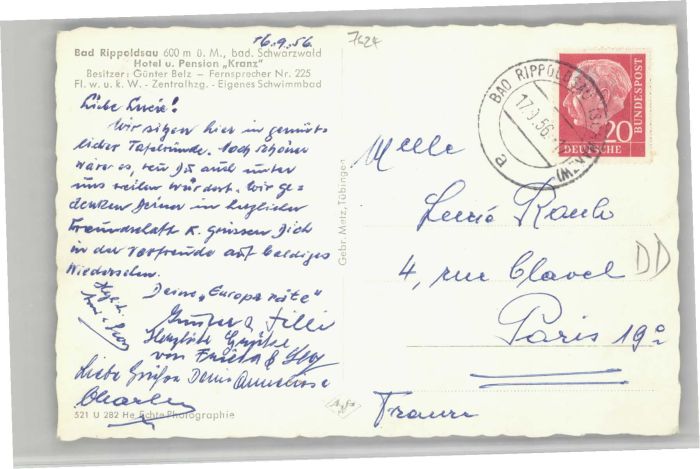 16.9.56.
7624
Bad Rippoldsau 600 m ü. M., bad. Schwarzwald
Hotel u. Pension „Kranz"
Besitzer: Günter Belz – Fernsprecher Nr. 225
Fl. w. u. k. W. - Zentralhzg. - Eigenes Schwimmbad
Liebe Lucie!
Wir sitzen hier in gemüt-
licher Tafelrunde. Noch schöner
wäre es, wenn Du auch unter
uns weilen würdest. Wir ge=
denken Deiner in herzlicher
Freundschaft u. grüssen Dich
in der Vorfreude auf baldiges
Wiedersehen.
Deine „Europaräte"
Günter & Lilli
Herzliche Grüße
von Frieda &
Liebe Grüße Deine Annerose
Charley
521 U 282 He Echte Photographie
Gebr. Metz, Tübingen
Agfa
BAD RIPPOLDSAU
17.9.56
a
20
DEUTSCHE
BUNDESPOST
Melle
Lucie Raub
4, rue Clavel
Paris 19e
France
DD